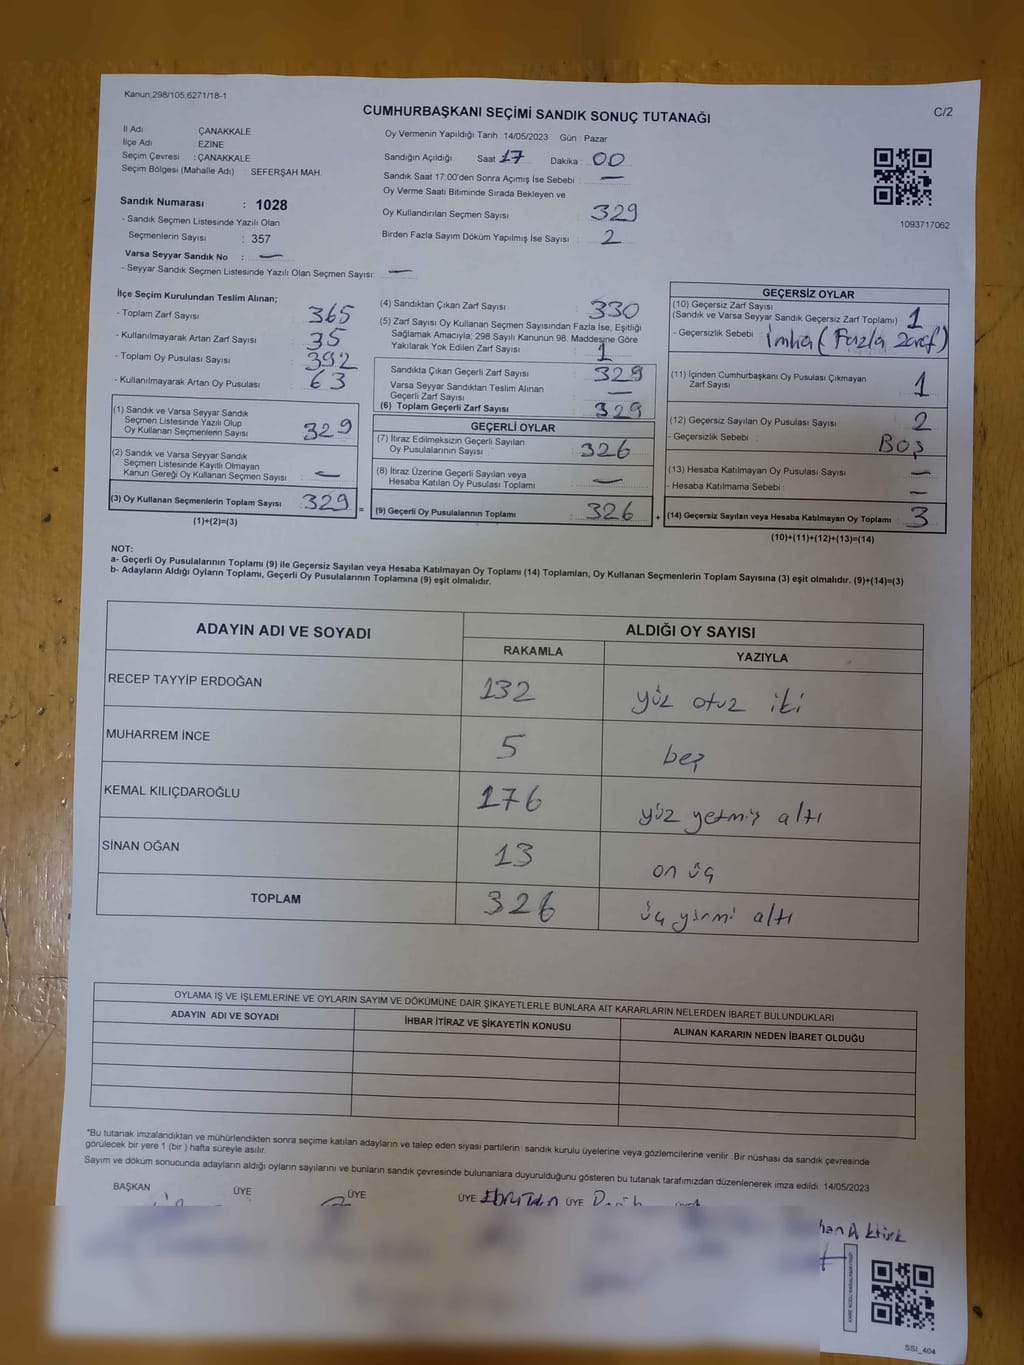 Kanun:298/105,6271/18-1
CUMHURBAŞKANI SEÇİMİ SANDIK SONUÇ TUTANAĞI
C/2
İl Adı : ÇANAKKALE
İlçe Adı : EZİNE
Seçim Çevresi : ÇANAKKALE
Seçim Bölgesi (Mahalle Adı) : SEFERŞAH MAH.
Sandık Numarası : 1028
- Sandık Seçmen Listesinde Yazılı Olan
Seçmenlerin Sayısı : 357
Varsa Seyyar Sandık No : —
- Seyyar Sandık Seçmen Listesinde Yazılı Olan Seçmen Sayısı: —
Oy Vermenin Yapıldığı Tarih : 14/05/2023 Gün : Pazar
Sandığın Açıldığı Saat 17 Dakika : 00
Sandık Saat 17:00'den Sonra Açımış İse Sebebi : —
Oy Verme Saati Bitiminde Sırada Bekleyen ve
Oy Kullandırılan Seçmen Sayısı : 329
Birden Fazla Sayım Döküm Yapılmış İse Sayısı : 2
1093717062
İlçe Seçim Kurulundan Teslim Alınan;
- Toplam Zarf Sayısı : 365
- Kullanılmayarak Artan Zarf Sayısı : 35
- Toplam Oy Pusulası Sayısı : 392
- Kullanılmayarak Artan Oy Pusulası : 63
(1) Sandık ve Varsa Seyyar Sandık
Seçmen Listesinde Yazılı Olup
Oy Kullanan Seçmenlerin Sayısı : 329
(2) Sandık ve Varsa Seyyar Sandık
Seçmen Listesinde Kayıtlı Olmayan
Kanun Gereği Oy Kullanan Seçmen Sayısı : —
(3) Oy Kullanan Seçmenlerin Toplam Sayısı : 329 =
(1)+(2)=(3)
(4) Sandıktan Çıkan Zarf Sayısı : 330
(5) Zarf Sayısı Oy Kullanan Seçmen Sayısından Fazla İse, Eşitliği
Sağlamak Amacıyla; 298 Sayılı Kanunun 98. Maddesine Göre
Yakılarak Yok Edilen Zarf Sayısı : 1
Sandıkta Çıkan Geçerli Zarf Sayısı : 329
Varsa Seyyar Sandıktan Teslim Alınan
Geçerli Zarf Sayısı : —
(6) Toplam Geçerli Zarf Sayısı : 329
GEÇERLİ OYLAR
(7) İtiraz Edilmeksizin Geçerli Sayılan
Oy Pusulalarının Sayısı : 326
(8) İtiraz Üzerine Geçerli Sayılan veya
Hesaba Katılan Oy Pusulası Toplamı : —
(9) Geçerli Oy Pusulalarının Toplamı : 326 +
GEÇERSİZ OYLAR
(10) Geçersiz Zarf Sayısı
(Sandık ve Varsa Seyyar Sandık Geçersiz Zarf Toplamı) : 1
- Geçersizlik Sebebi : İmha (Fazla zarf)
(11) İçinden Cumhurbaşkanı Oy Pusulası Çıkmayan
Zarf Sayısı : 1
(12) Geçersiz Sayılan Oy Pusulası Sayısı : 2
- Geçersizlik Sebebi : BOŞ
(13) Hesaba Katılmayan Oy Pusulası Sayısı : —
- Hesaba Katılmama Sebebi : —
(14) Geçersiz Sayılan veya Hesaba Katılmayan Oy Toplamı : 3
(10)+(11)+(12)+(13)=(14)
NOT:
a- Geçerli Oy Pusulalarının Toplamı (9) ile Geçersiz Sayılan veya Hesaba Katılmayan Oy Toplamı (14) Toplamları, Oy Kullanan Seçmenlerin Toplam Sayısına (3) eşit olmalıdır. (9)+(14)=(3)
b- Adayların Aldığı Oyların Toplamı, Geçerli Oy Pusulalarının Toplamına (9) eşit olmalıdır.
ADAYIN ADI VE SOYADI ALDIĞI OY SAYISI
RAKAMLA YAZIYLA
RECEP TAYYİP ERDOĞAN 132 yüz otuz iki
MUHARREM İNCE 5 beş
KEMAL KILIÇDAROĞLU 176 yüz yetmiş altı
SİNAN OĞAN 13 on üç
TOPLAM 326 üç yirmi altı
OYLAMA İŞ VE İŞLEMLERİNE VE OYLARIN SAYIM VE DÖKÜMÜNE DAİR ŞİKAYETLERLE BUNLARA AİT KARARLARIN NELERDEN İBARET BULUNDUKLARI
ADAYIN ADI VE SOYADI İHBAR İTİRAZ VE ŞİKAYETİN KONUSU ALINAN KARARIN NEDEN İBARET OLDUĞU
*Bu tutanak imzalandıktan ve mühürlendikten sonra seçime katılan adayların ve talep eden siyasi partilerin sandık kurulu üyelerine veya gözlemcilerine verilir. Bir nüshası da sandık çevresinde
görülecek bir yere 1 (bir ) hafta süreyle asılır.
Sayım ve döküm sonucunda adayların aldığı oyların sayılarını ve bunların sandık çevresinde bulunanlara duyurulduğunu gösteren bu tutanak tarafımızdan düzenlenerek imza edildi. 14/05/2023
BAŞKAN ÜYE ÜYE ÜYE ÜYE
han Aktürk
SSI_404